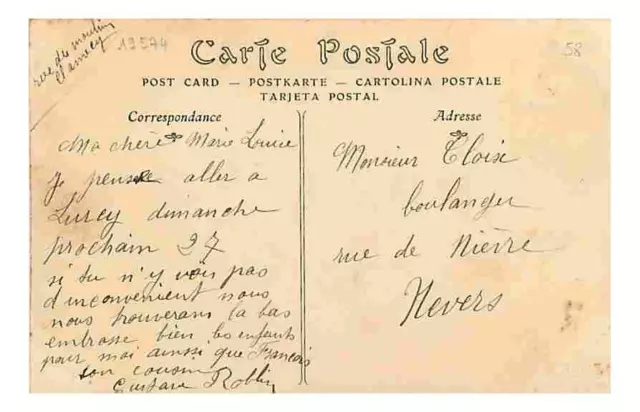 rue du moulin
Clamecy
19574
58
Carte Postale
POST CARD — POSTKARTE — CARTOLINA POSTALE
TARJETA POSTAL
Correspondance
Ma chère Marie Louise
Je pense aller à
Lurcy dimanche
prochain 27
si tu n'y vois pas
d'inconvenient nous
nous trouverons la bas
embrasse bien les enfants
pour moi ainsi que François
ton cousin
Gustave Roblin
Adresse
Monsieur Cloix
boulanger
rue de Nièvre
Nevers